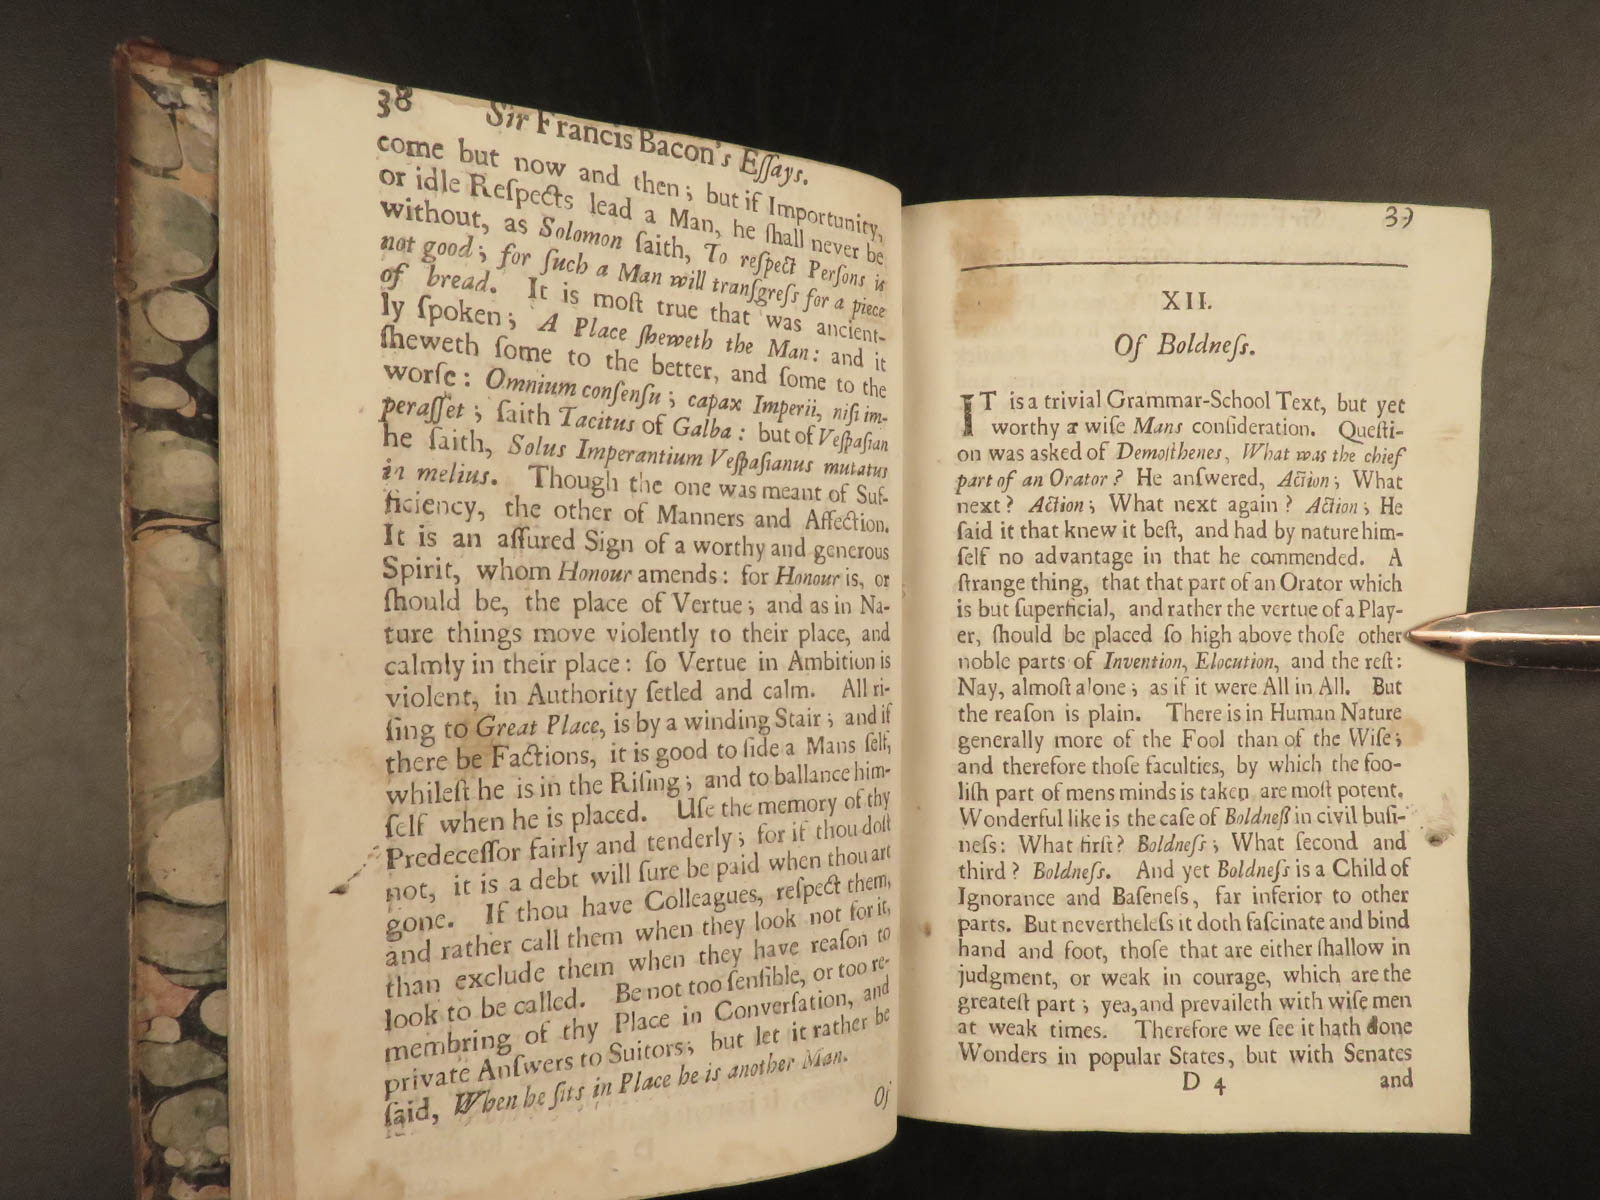 38 Sir Francis Bacon's Eſſays.
come but now and then; but if Importunity,
or idle Reſpects lead a Man, he ſhall never be
without, as Solomon ſaith, To reſpect Perſons is
not good; for ſuch a Man will tranſgreſs for a piece
of bread. It is moſt true that was ancient-
ly ſpoken; A Place ſheweth the Man: and it
ſheweth ſome to the better, and ſome to the
worſe: Omnium conſenſu; capax Imperii, niſi im-
peraſſet; ſaith Tacitus of Galba: but of Veſpaſian
he ſaith, Solus Imperantium Veſpaſianus mutatus
in melius. Though the one was meant of Suf-
ficiency, the other of Manners and Affection.
It is an aſſured Sign of a worthy and generous
Spirit, whom Honour amends: for Honour is, or
ſhould be, the place of Vertue; and as in Na-
ture things move violently to their place, and
calmly in their place: ſo Vertue in Ambition is
violent, in Authority ſetled and calm. All ri-
ſing to Great Place, is by a winding Stair; and if
there be Factions, it is good to ſide a Mans ſelf,
whileſt he is in the Riſing; and to ballance him-
ſelf when he is placed. Uſe the memory of thy
Predeceſſor fairly and tenderly; for if thou doſt
not, it is a debt will ſure be paid when thou art
gone. If thou have Colleagues, reſpect them,
and rather call them when they look not for it,
than exclude them when they have reaſon to
look to be called. Be not too ſenſible, or too re-
membring of thy Place in Converſation, and
private Anſwers to Suitors; but let it rather be
ſaid, When he ſits in Place he is another Man.
Of
39
XII.
Of Boldneſs.
IT is a trivial Grammar-School Text, but yet
worthy a wiſe Mans conſideration. Queſti-
on was asked of Demoſthenes, What was the chief
part of an Orator? He anſwered, Action; What
next? Action; What next again? Action; He
ſaid it that knew it beſt, and had by nature him-
ſelf no advantage in that he commended. A
ſtrange thing, that that part of an Orator which
is but ſuperficial, and rather the vertue of a Play-
er, ſhould be placed ſo high above thoſe other
noble parts of Invention, Elocution, and the reſt:
Nay, almoſt alone; as if it were All in All. But
the reaſon is plain. There is in Human Nature
generally more of the Fool than of the Wiſe;
and therefore thoſe faculties, by which the foo-
liſh part of mens minds is taken are moſt potent.
Wonderful like is the caſe of Boldneß in civil buſi-
neſs: What firſt? Boldneſs; What ſecond and
third? Boldneſs. And yet Boldneſs is a Child of
Ignorance and Baſeneſs, far inferior to other
parts. But nevertheleſs it doth faſcinate and bind
hand and foot, thoſe that are either ſhallow in
judgment, or weak in courage, which are the
greateſt part; yea, and prevaileth with wiſe men
at weak times. Therefore we ſee it hath done
Wonders in popular States, but with Senates
D 4 and